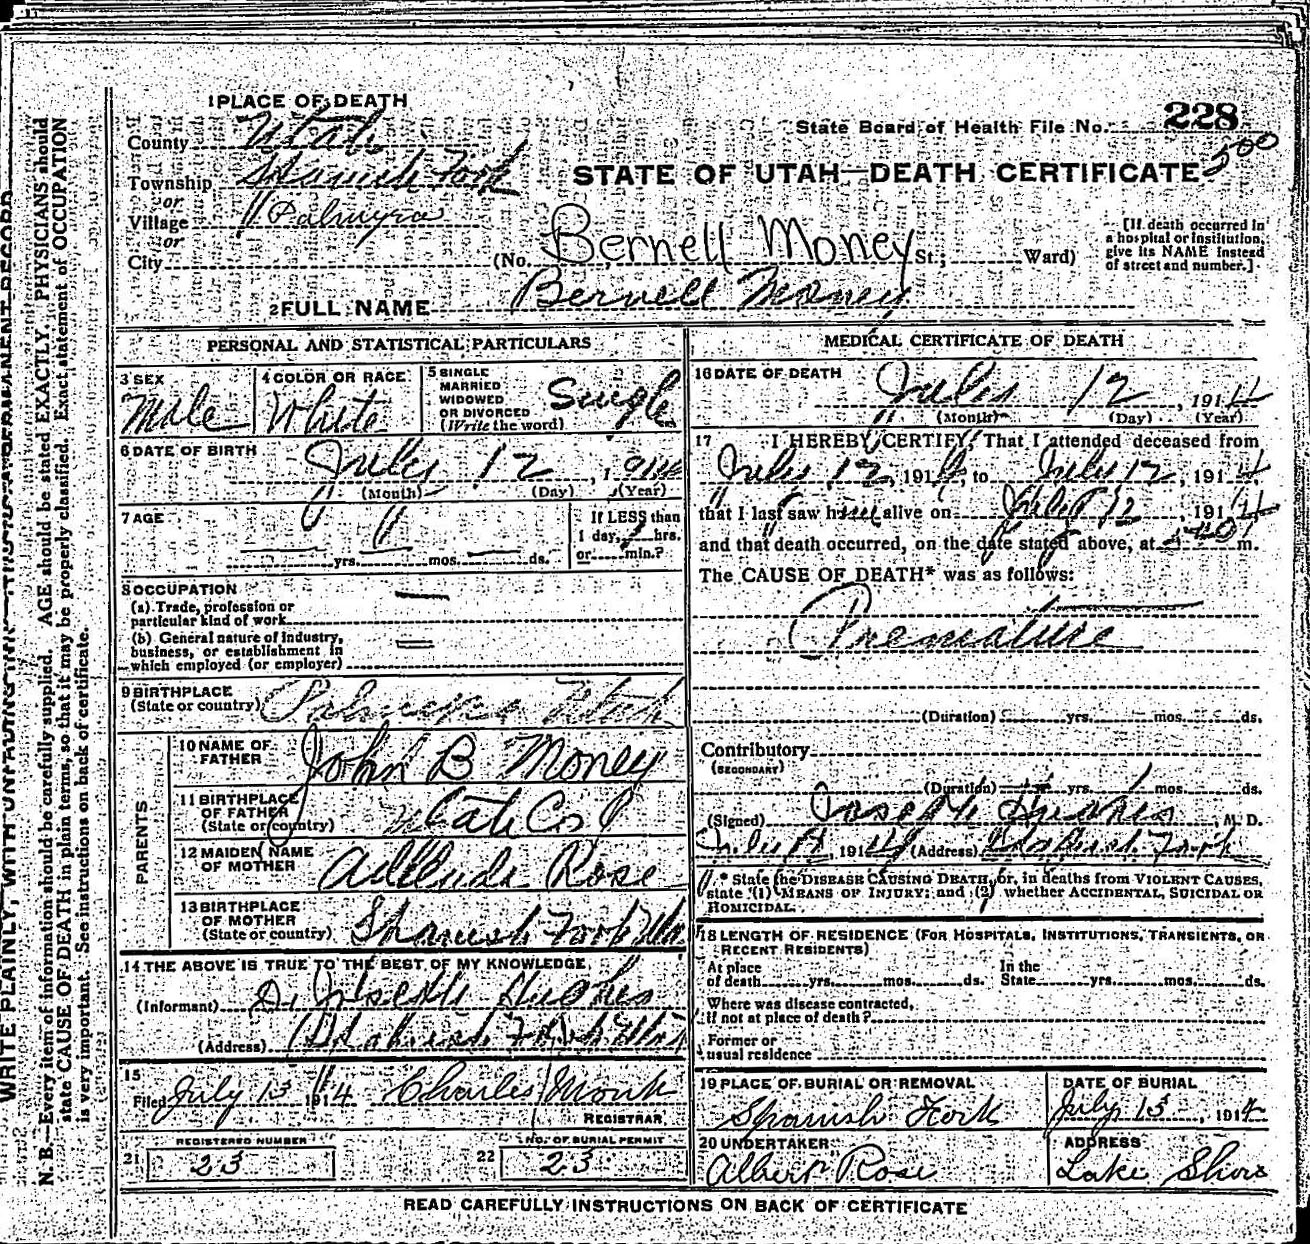 228
State Board of Health File No.
500
1 PLACE OF DEATH
County Utah
Township Spanish Fork
or
Village " Palmyra
or
City
STATE OF UTAH—DEATH CERTIFICATE
(No. Bernell Money St; Ward)
[If death occurred in
a hospital or institution,
give its NAME instead
of street and number.]
2 FULL NAME Bernell Money
PERSONAL AND STATISTICAL PARTICULARS
3 SEX
Male
4 COLOR OR RACE
White
5 SINGLE
MARRIED
WIDOWED
OR DIVORCED
(Write the word)
Single
6 DATE OF BIRTH
July 12, 1914
(Month) (Day) (Year)
7 AGE
yrs. mos. ds.
If LESS than
1 day, hrs.
or min.?
8 OCCUPATION
(a) Trade, profession or
particular kind of work
(b) General nature of industry,
business, or establishment in
which employed (or employer)
9 BIRTHPLACE
(State or country) Palmyra Utah
PARENTS
10 NAME OF
FATHER
John B Money
11 BIRTHPLACE
OF FATHER
(State or country)
Utah Co
12 MAIDEN NAME
OF MOTHER
Rose
13 BIRTHPLACE
OF MOTHER
(State or country)
Spanish Fork
14 THE ABOVE IS TRUE TO THE BEST OF MY KNOWLEDGE
(Informant) Hughes
(Address) Spanish Fork
15
Filed July 13 1914 Charles Monk
REGISTRAR
REGISTERED NUMBER
21 23
NO. OF BURIAL PERMIT
22 23
MEDICAL CERTIFICATE OF DEATH
16 DATE OF DEATH
July 12, 1914
(Month) (Day) (Year)
17 I HEREBY CERTIFY, That I attended deceased from
July 12, 1914, to July 12, 1914,
that I last saw him alive on July 12 1914
and that death occurred, on the date stated above, at m.
The CAUSE OF DEATH* was as follows:
Premature
(Duration) yrs. mos. ds.
Contributory
(SECONDARY)
(Duration) yrs. mos. ds.
(Signed) Hughes, M. D.
1914 (Address) Spanish Fork
* State the DISEASE CAUSING DEATH, or, in deaths from VIOLENT CAUSES,
state (1) MEANS OF INJURY; and (2) whether ACCIDENTAL, SUICIDAL OR
HOMICIDAL.
18 LENGTH OF RESIDENCE (FOR HOSPITALS, INSTITUTIONS, TRANSIENTS, OR
RECENT RESIDENTS)
At place
of death yrs. mos. ds.
In the
State yrs. mos. ds.
Where was disease contracted,
if not at place of death?
Former or
usual residence
19 PLACE OF BURIAL OR REMOVAL
Spanish Fork
DATE OF BURIAL
July 13, 1914
20 UNDERTAKER
Albert Rose
ADDRESS
Lake Shore
READ CAREFULLY INSTRUCTIONS ON BACK OF CERTIFICATE
WRITE PLAINLY, WITH UNFADING INK—THIS IS A PERMANENT RECORD
N. B.—Every item of information should be carefully supplied. AGE should be stated EXACTLY. PHYSICIANS should
state CAUSE OF DEATH in plain terms, so that it may be properly classified. Exact statement of OCCUPATION
is very important. See instructions on back of certificate.